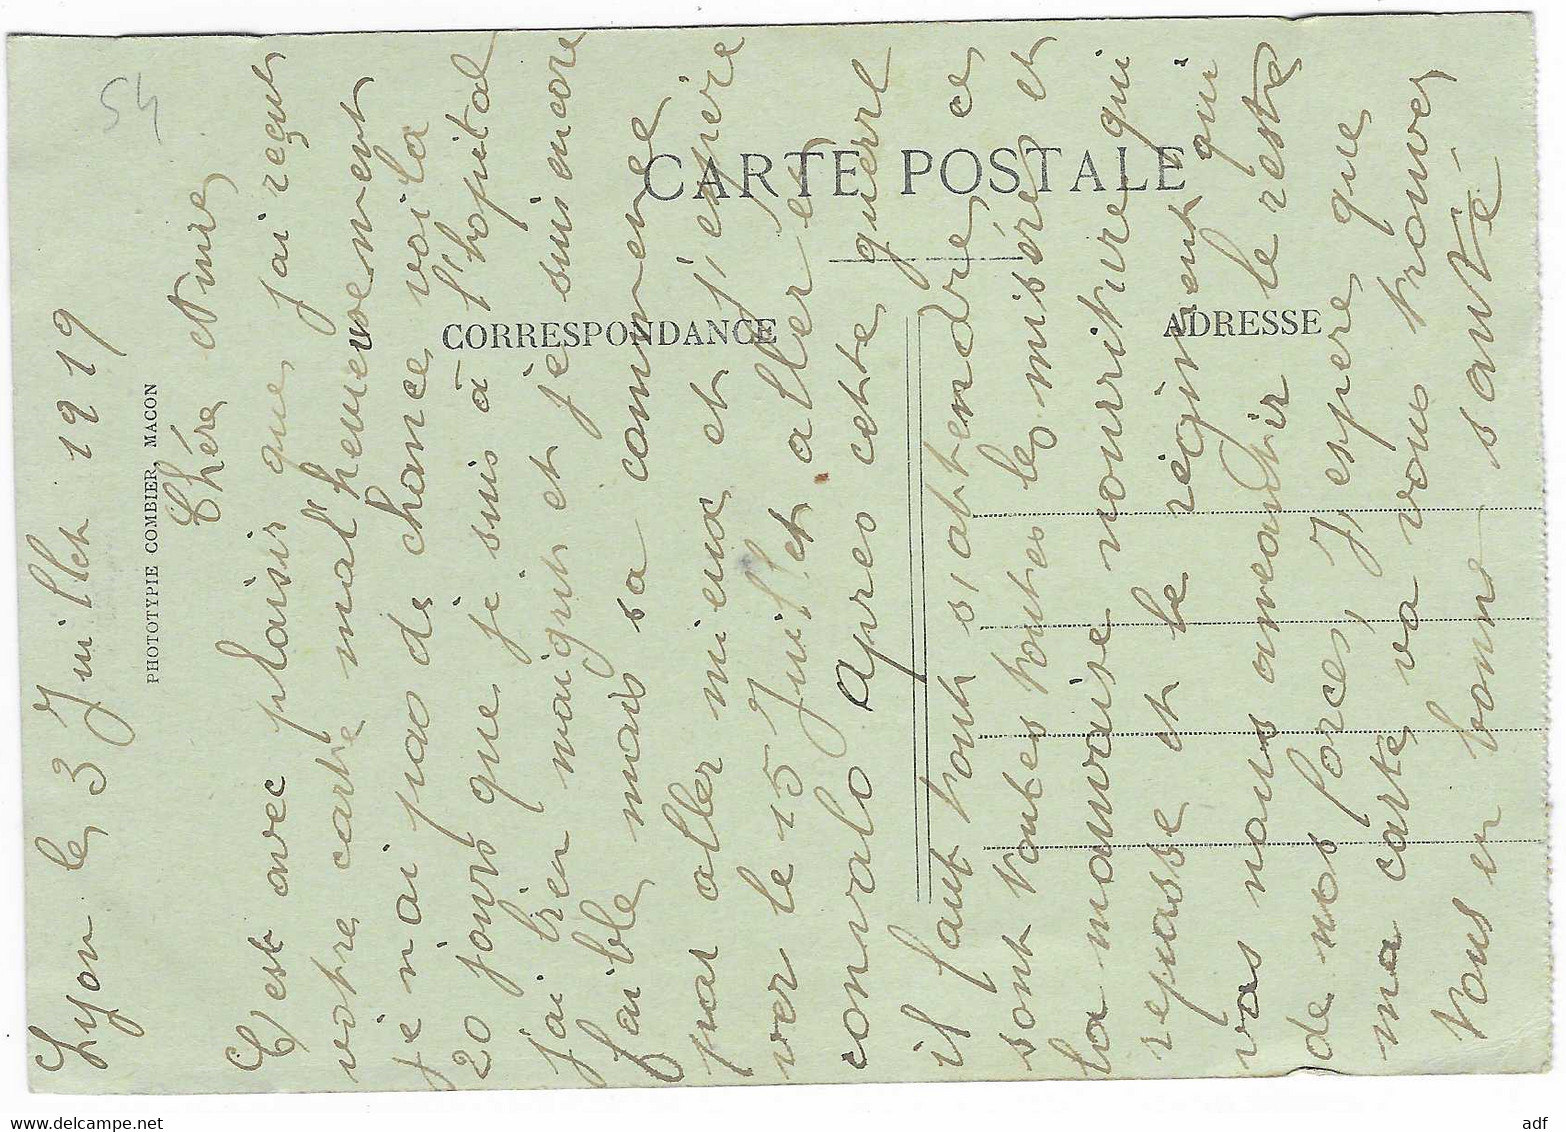 54
CARTE POSTALE
CORRESPONDANCE
ADRESSE
PHOTOTYPIE COMBIER, MACON
Lyon le 3 Juillet 1919
Chére
C'est avec plaisir que j'ai reçut
votre carte mal'heureusement
je n'ai pas de chance voila
20 jours que je suis à l'hopital
j'ai bien maigrit et je suis encore
faible mais sa commence
par aller mieux et j'espére
ver le 15 Juillet aller en
convalo apres cette guerre
il faut tout s'attendre ce
sont toutes toutes les misére et
la mauvaise nourriture qui
repasse et le régiment qui
vas nous anneantir le reste
de nos forces, J'espere que
ma carte va vous trouver
tous en bonne santé
adf